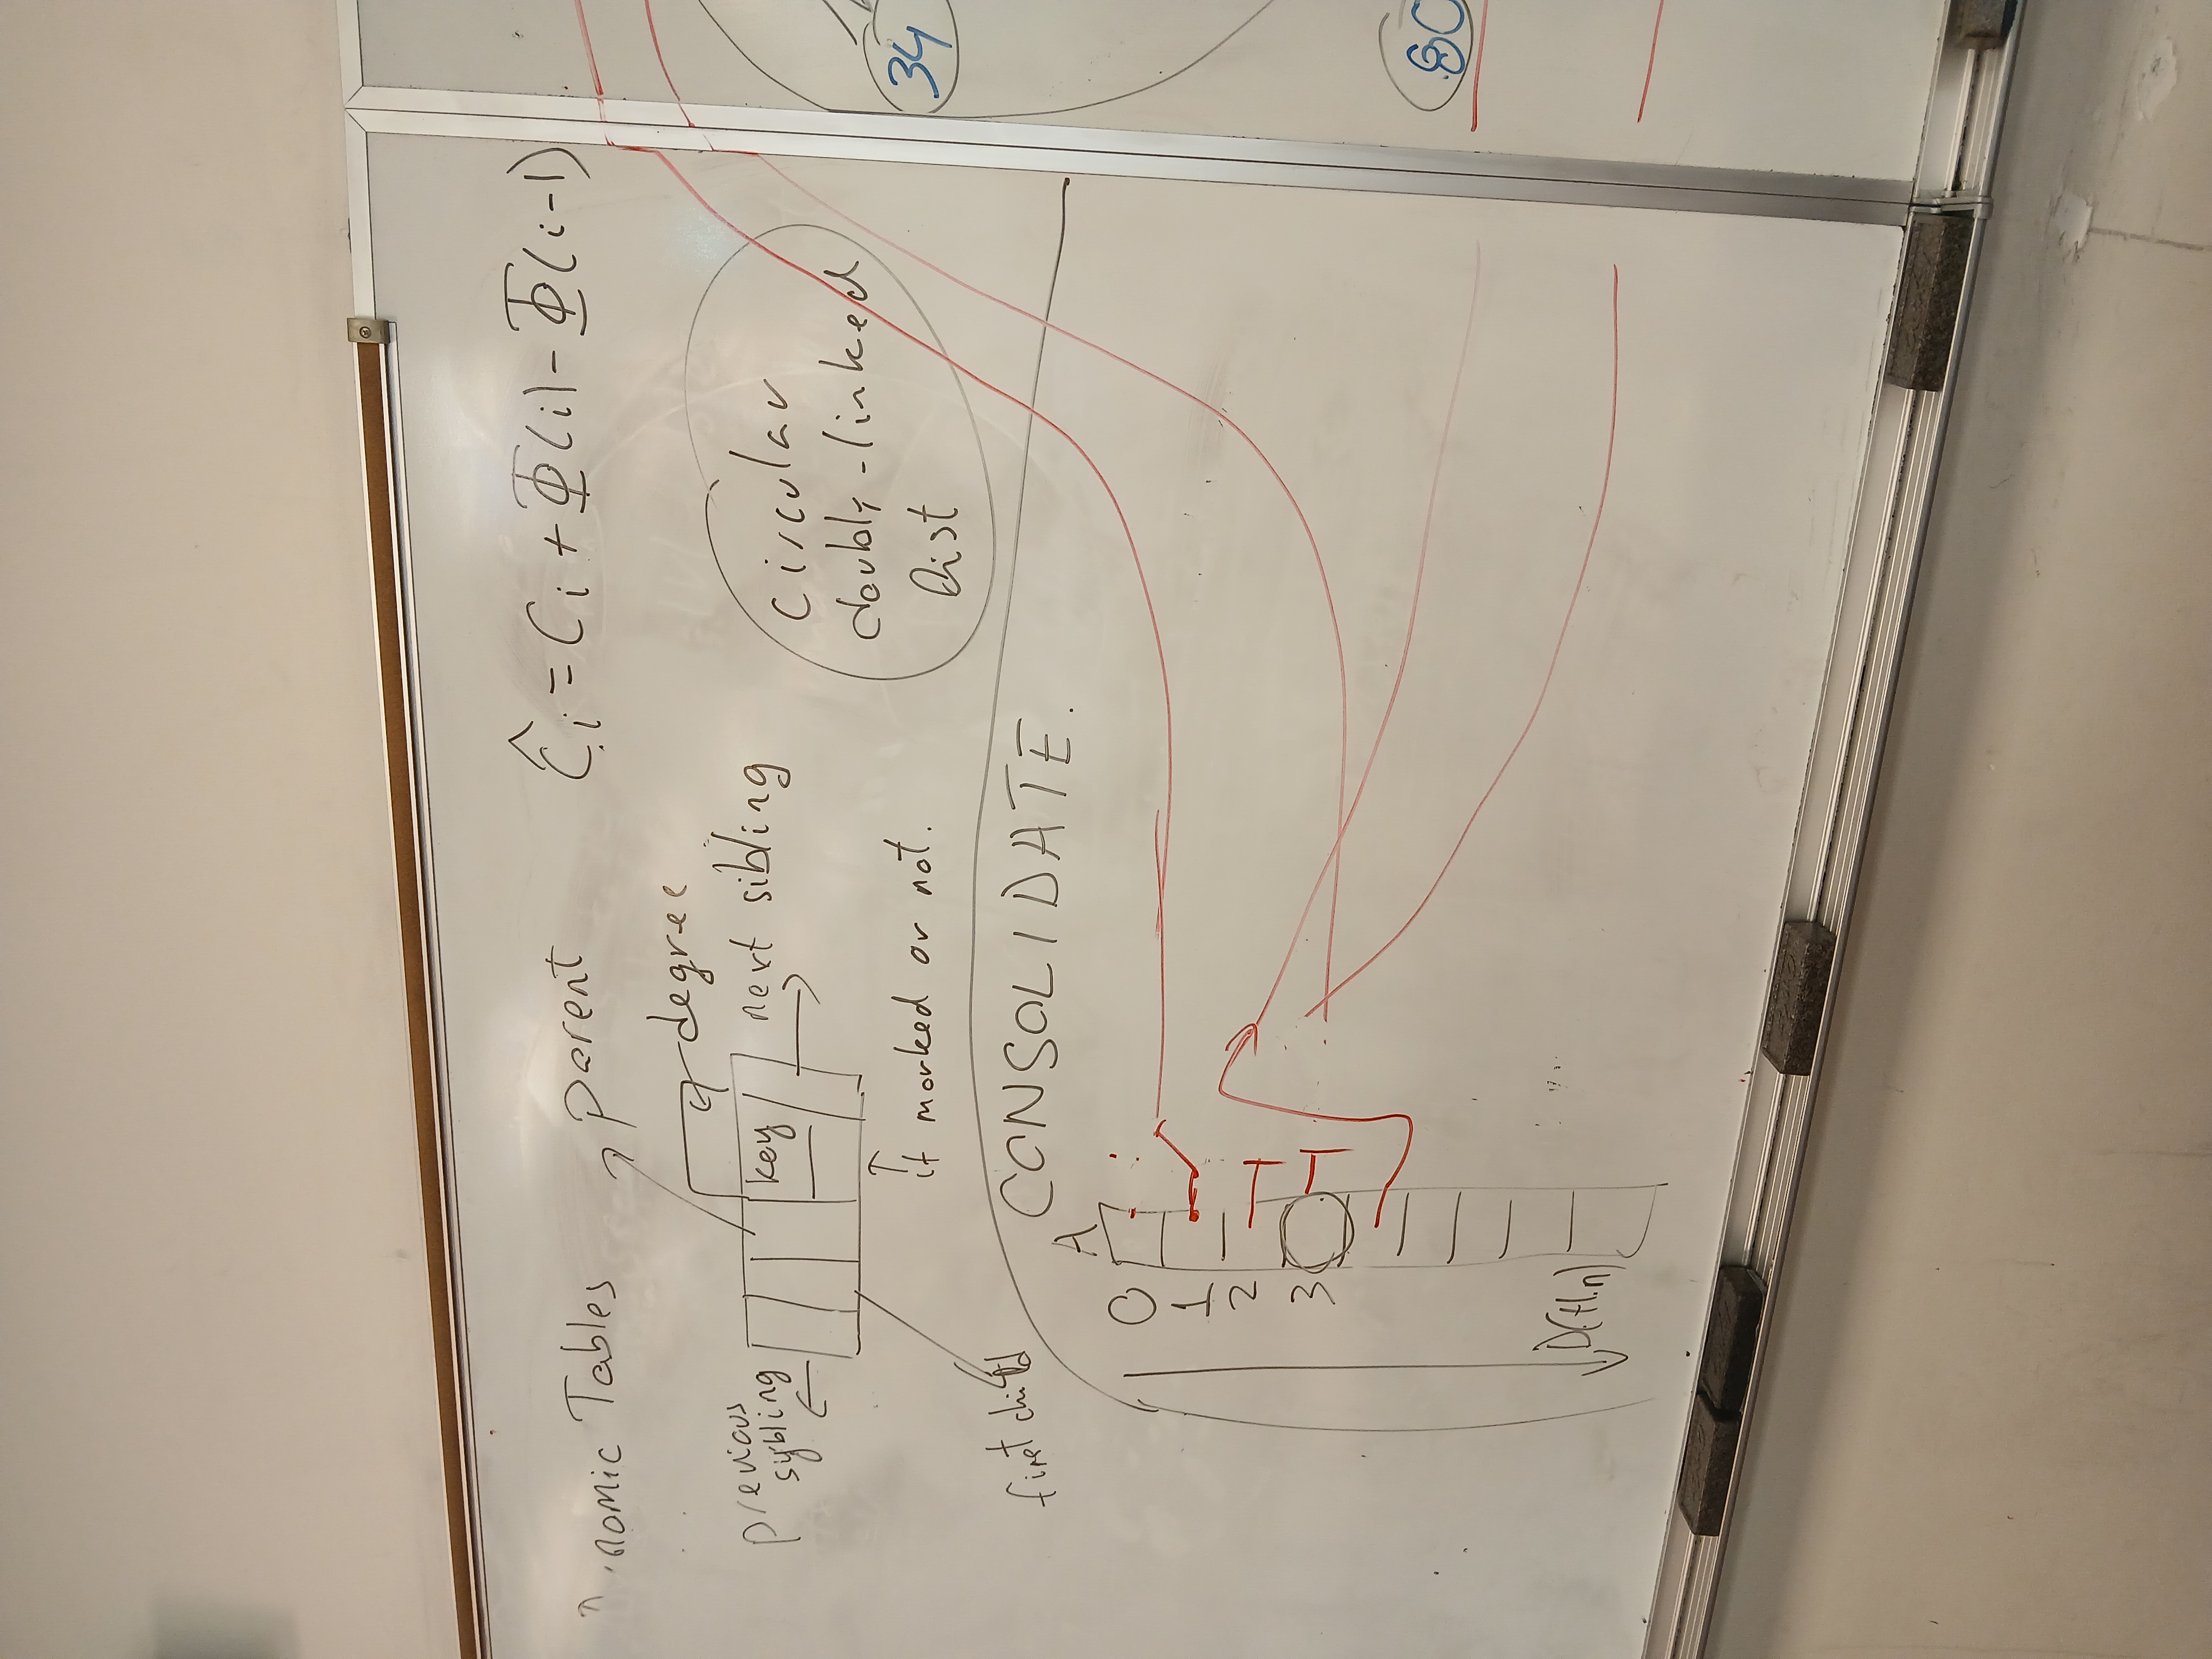 Tables
parent
Ĉi = Ci + Φ(i) - Φ(i-1)
degree
previous
sybling
key
next sibling
if marked or not.
first child
circular
doubly-linked
list
CONSOLIDATE.
A
0
1
2
3
D(H.n)
34
80